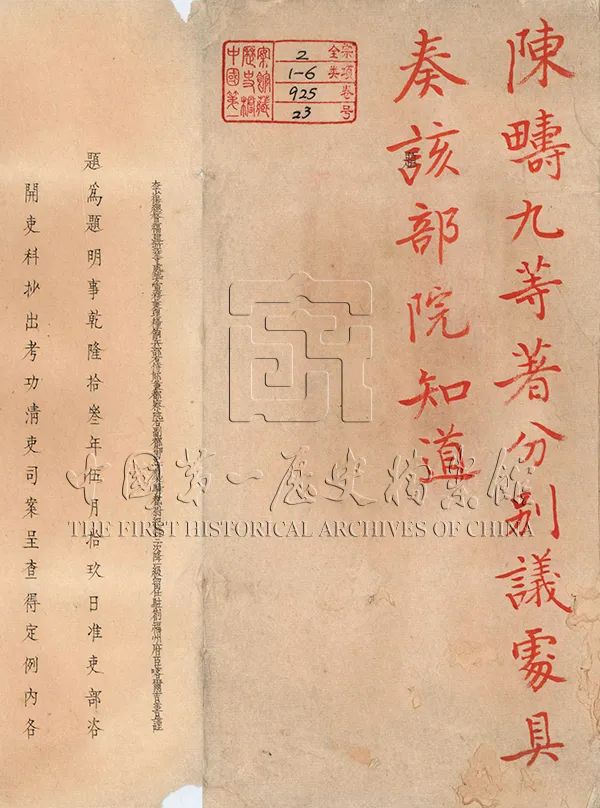 陳疇九等著分別議處具
奏該部院知道
題
中國第一歷史檔案館藏
全宗 2
类项 1-6
卷 925
号 23
題為題明事乾隆拾叄年伍月拾玖日准吏部咨
開吏科抄出考功清吏司案呈查得定例內各
中國第一歷史檔案館
THE FIRST HISTORICAL ARCHIVES OF CHINA